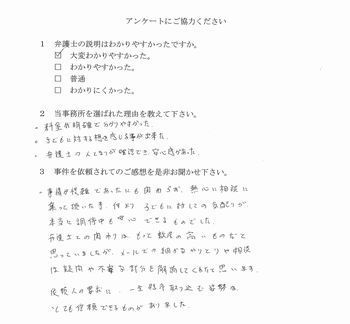 アンケートにご協力ください
1 弁護士の説明はわかりやすかったですか。
☑ 大変わかりやすかった。
□ わかりやすかった。
□ 普通
□ わかりにくかった。
2 当事務所を選ばれた理由を教えて下さい。
・料金が明確で分りやすかった
・子どもに対する想を感じる事が出来た.
・弁護士の人となりが確認でき、安心感があった.
3 事件を依頼されてのご感想を是非お聞かせ下さい。
・事情が複雑であったにも関わらず、熱心に相談に
乗って頂いた事、何より子どもに対しての気配りが
本当に調停中も安心できるものでした.
弁護士との関わりは もっと敷居の高いものだと
思っていましたが、メールでの細かなやりとりや相談
は疑問や不安な部分を解消してくれたと思います.
依頼人の要求に、一生懸命取り込む姿勢は、
とても信頼できるものがありました.